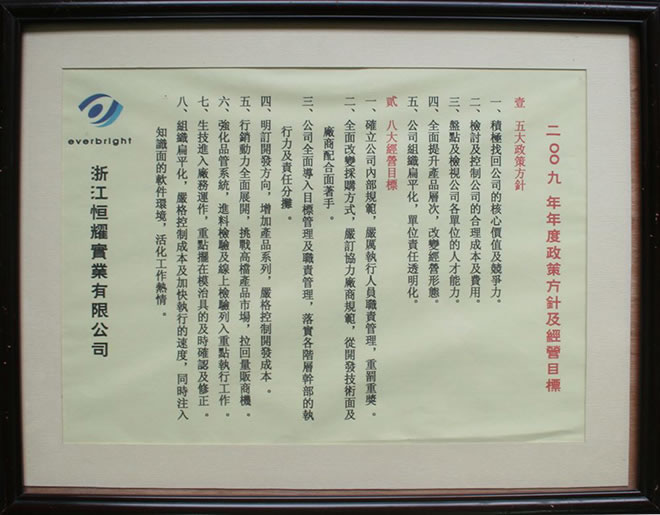 二〇〇九 年年度政策方針及經營目標
壹 五大政策方針
一、積極找回公司的核心價值及競爭力。
二、檢討及控制公司的合理成本及費用。
三、盤點及檢視公司各單位的人才能力。
四、全面提升產品層次，改變經營形態。
五、公司組織扁平化，單位責任透明化。
貳 八大經營目標
一、確立公司內部規範，嚴厲執行人員職責管理，重罰重獎。
二、全面改變採購方式，嚴訂協力廠商規範，從開發技術面及
廠商配合面著手。
三、公司全面導入目標管理及職責管理，落實各階層幹部的執
行力及責任分攤。
四、明訂開發方向，增加產品系列，嚴格控制開發成本。
五、行銷動力全面展開，挑戰高檔產品市場，拉回量販商機。
六、強化品管系統，進料檢驗及線上檢驗列入重點執行工作。
七、生技進入廠務運作，重點擺在模治具的及時確認及修正。
八、組織扁平化，嚴格控制成本及加快執行的速度，同時注入
知識面的軟件環境，活化工作熱情。
everbright
浙江恒耀實業有限公司